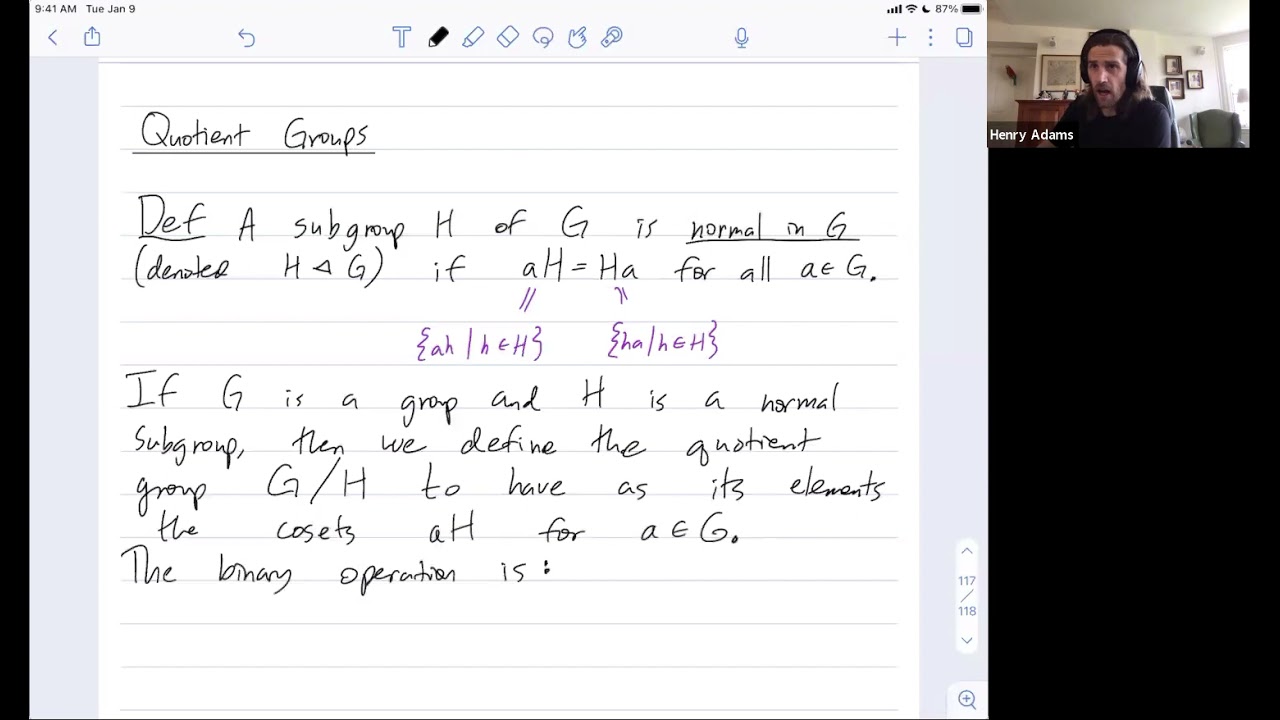 9:41 AM Tue Jan 9
87%
Henry Adams
Quotient Groups
Def A subgroup H of G is normal in G
(denoted H ⊲ G) if aH = Ha for all a ∈ G.
{ah | h ∈ H} {ha | h ∈ H}
If G is a group and H is a normal
subgroup, then we define the quotient
group G/H to have as its elements
the cosets aH for a ∈ G.
The binary operation is:
117
/
118